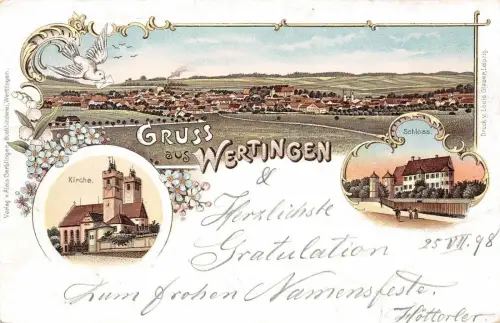 Verlag v. Alois Deiblinger, Buchbinderei, Wertingen.
Druck v. Louis Glaser, Leipzig.
GRUSS
aus WERTINGEN
Kirche.
Schloss.
&
Herzlichste
Gratulation
25 VII. 98
zum frohen Namensfeste.